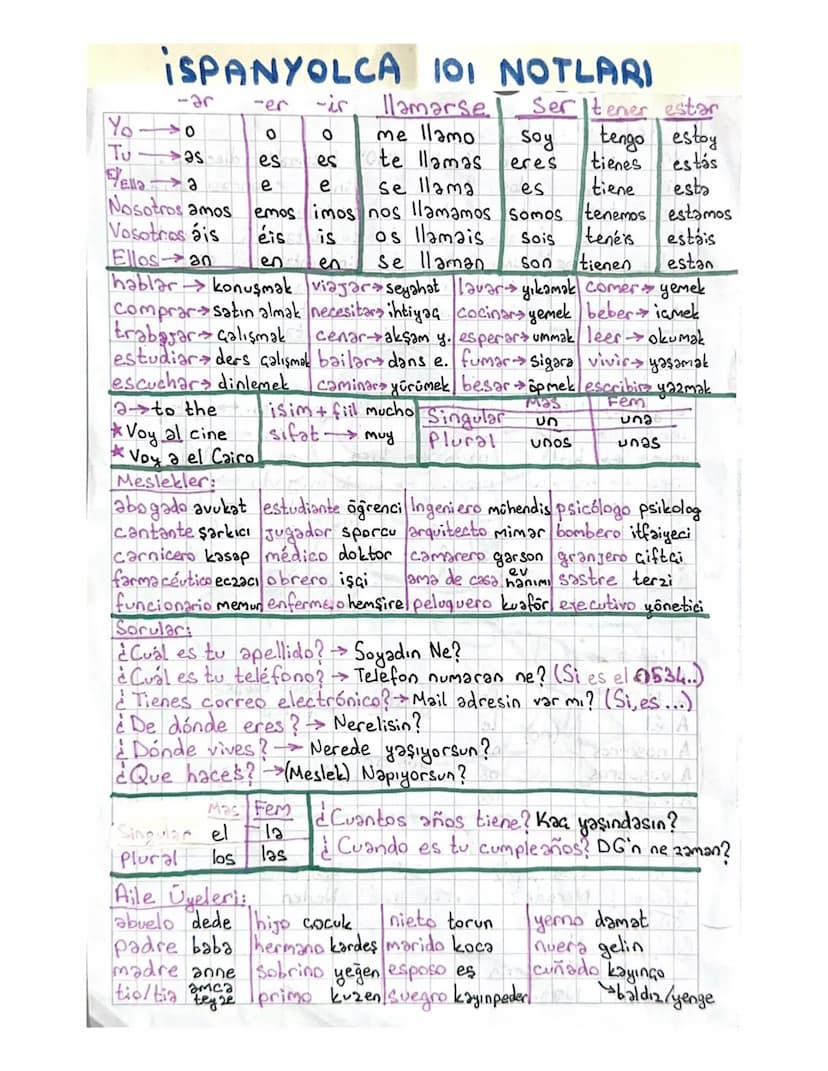 İSPANYOLCA 101 NOTLARI
-ar -er -ir llamarse Ser tener estar
Yo → o o o me llamo soy tengo estoy
Tu → as es es te llamas eres tienes estás
El/Ella → a e e se llama es tiene esta
Nosotros amos emos imos nos llamamos somos tenemos estamos
Vosotros áis éis is os llamais sois tenéis estáis
Ellos → an en en se llaman son tienen estan
hablar → konuşmak viajar → seyahat lavar → yıkamak comer → yemek
comprar → satın almak necesitar → ihtiyaç cocinar → yemek beber → içmek
trabajar → çalışmak cenar → akşam y. esperar → ummak leer → okumak
estudiar → ders çalışmak bailar → dans e. fumar → Sigara vivir → yaşamak
escuchar → dinlemek caminar → yürümek besar → öpmek escribir → yazmak
a → to the isim + fiil mucho Mas Fem
* Voy al cine sıfat → muy Singular un una
* Voy a el Cairo Plural unos unas
Meslekler:
abogado avukat estudiante öğrenci Ingeniero mühendis psicólogo psikolog
cantante şarkıcı jugador sporcu arquitecto mimar bombero itfaiyeci
carnicero kasap médico doktor camarero garson granjero çiftçi
farmacéutico eczacı obrero işçi ama de casa ev hanımı sastre terzi
funcionario memur enfermero hemşire peluquero kuaför executivo yönetici
Sorular:
¿Cuál es tu apellido? → Soyadın Ne?
¿Cuál es tu teléfono? → Telefon numaran ne? (Si es el 0534..)
¿Tienes correo electrónico? → Mail adresin var mı? (Si, es ...)
¿De dónde eres? → Nerelisin?
¿Dónde vives? → Nerede yaşıyorsun?
¿Que haces? → (Meslek) Napıyorsun?
Mas Fem
Singular el la
Plural los las
¿Cuantos años tiene? Kaç yaşındasın?
¿Cuando es tu cumpleaños? DG'n ne zaman?
Aile Üyeleri:
abuelo dede hijo çocuk nieto torun yerno damat
padre baba hermano kardeş marido koca nuera gelin
madre anne sobrino yeğen esposo eş cuñado kayınço
tio/tia amca teyze primo kuzen suegro kayınpeder → baldız/yenge